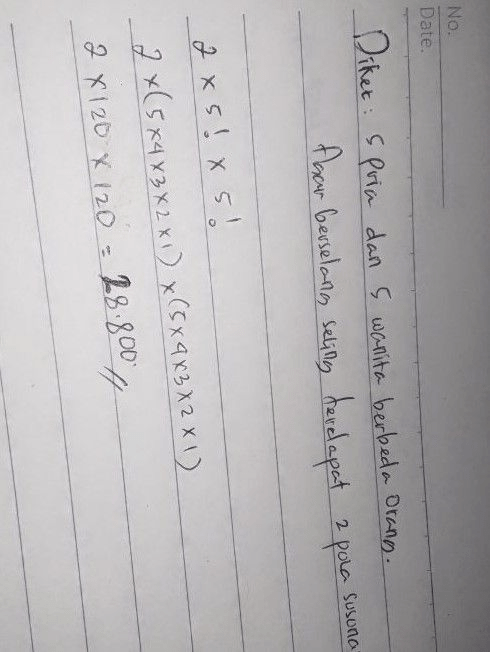 No.
Date.
Diket : 5 pria dan 5 wanita berbeda orang.
berselang seling terdapat 2 pola susuna
2 x 5! x 5!
2 x (5x4x3x2x1) x (5x4x3x2x1)
2 x 120 x 120 = 28.800 //